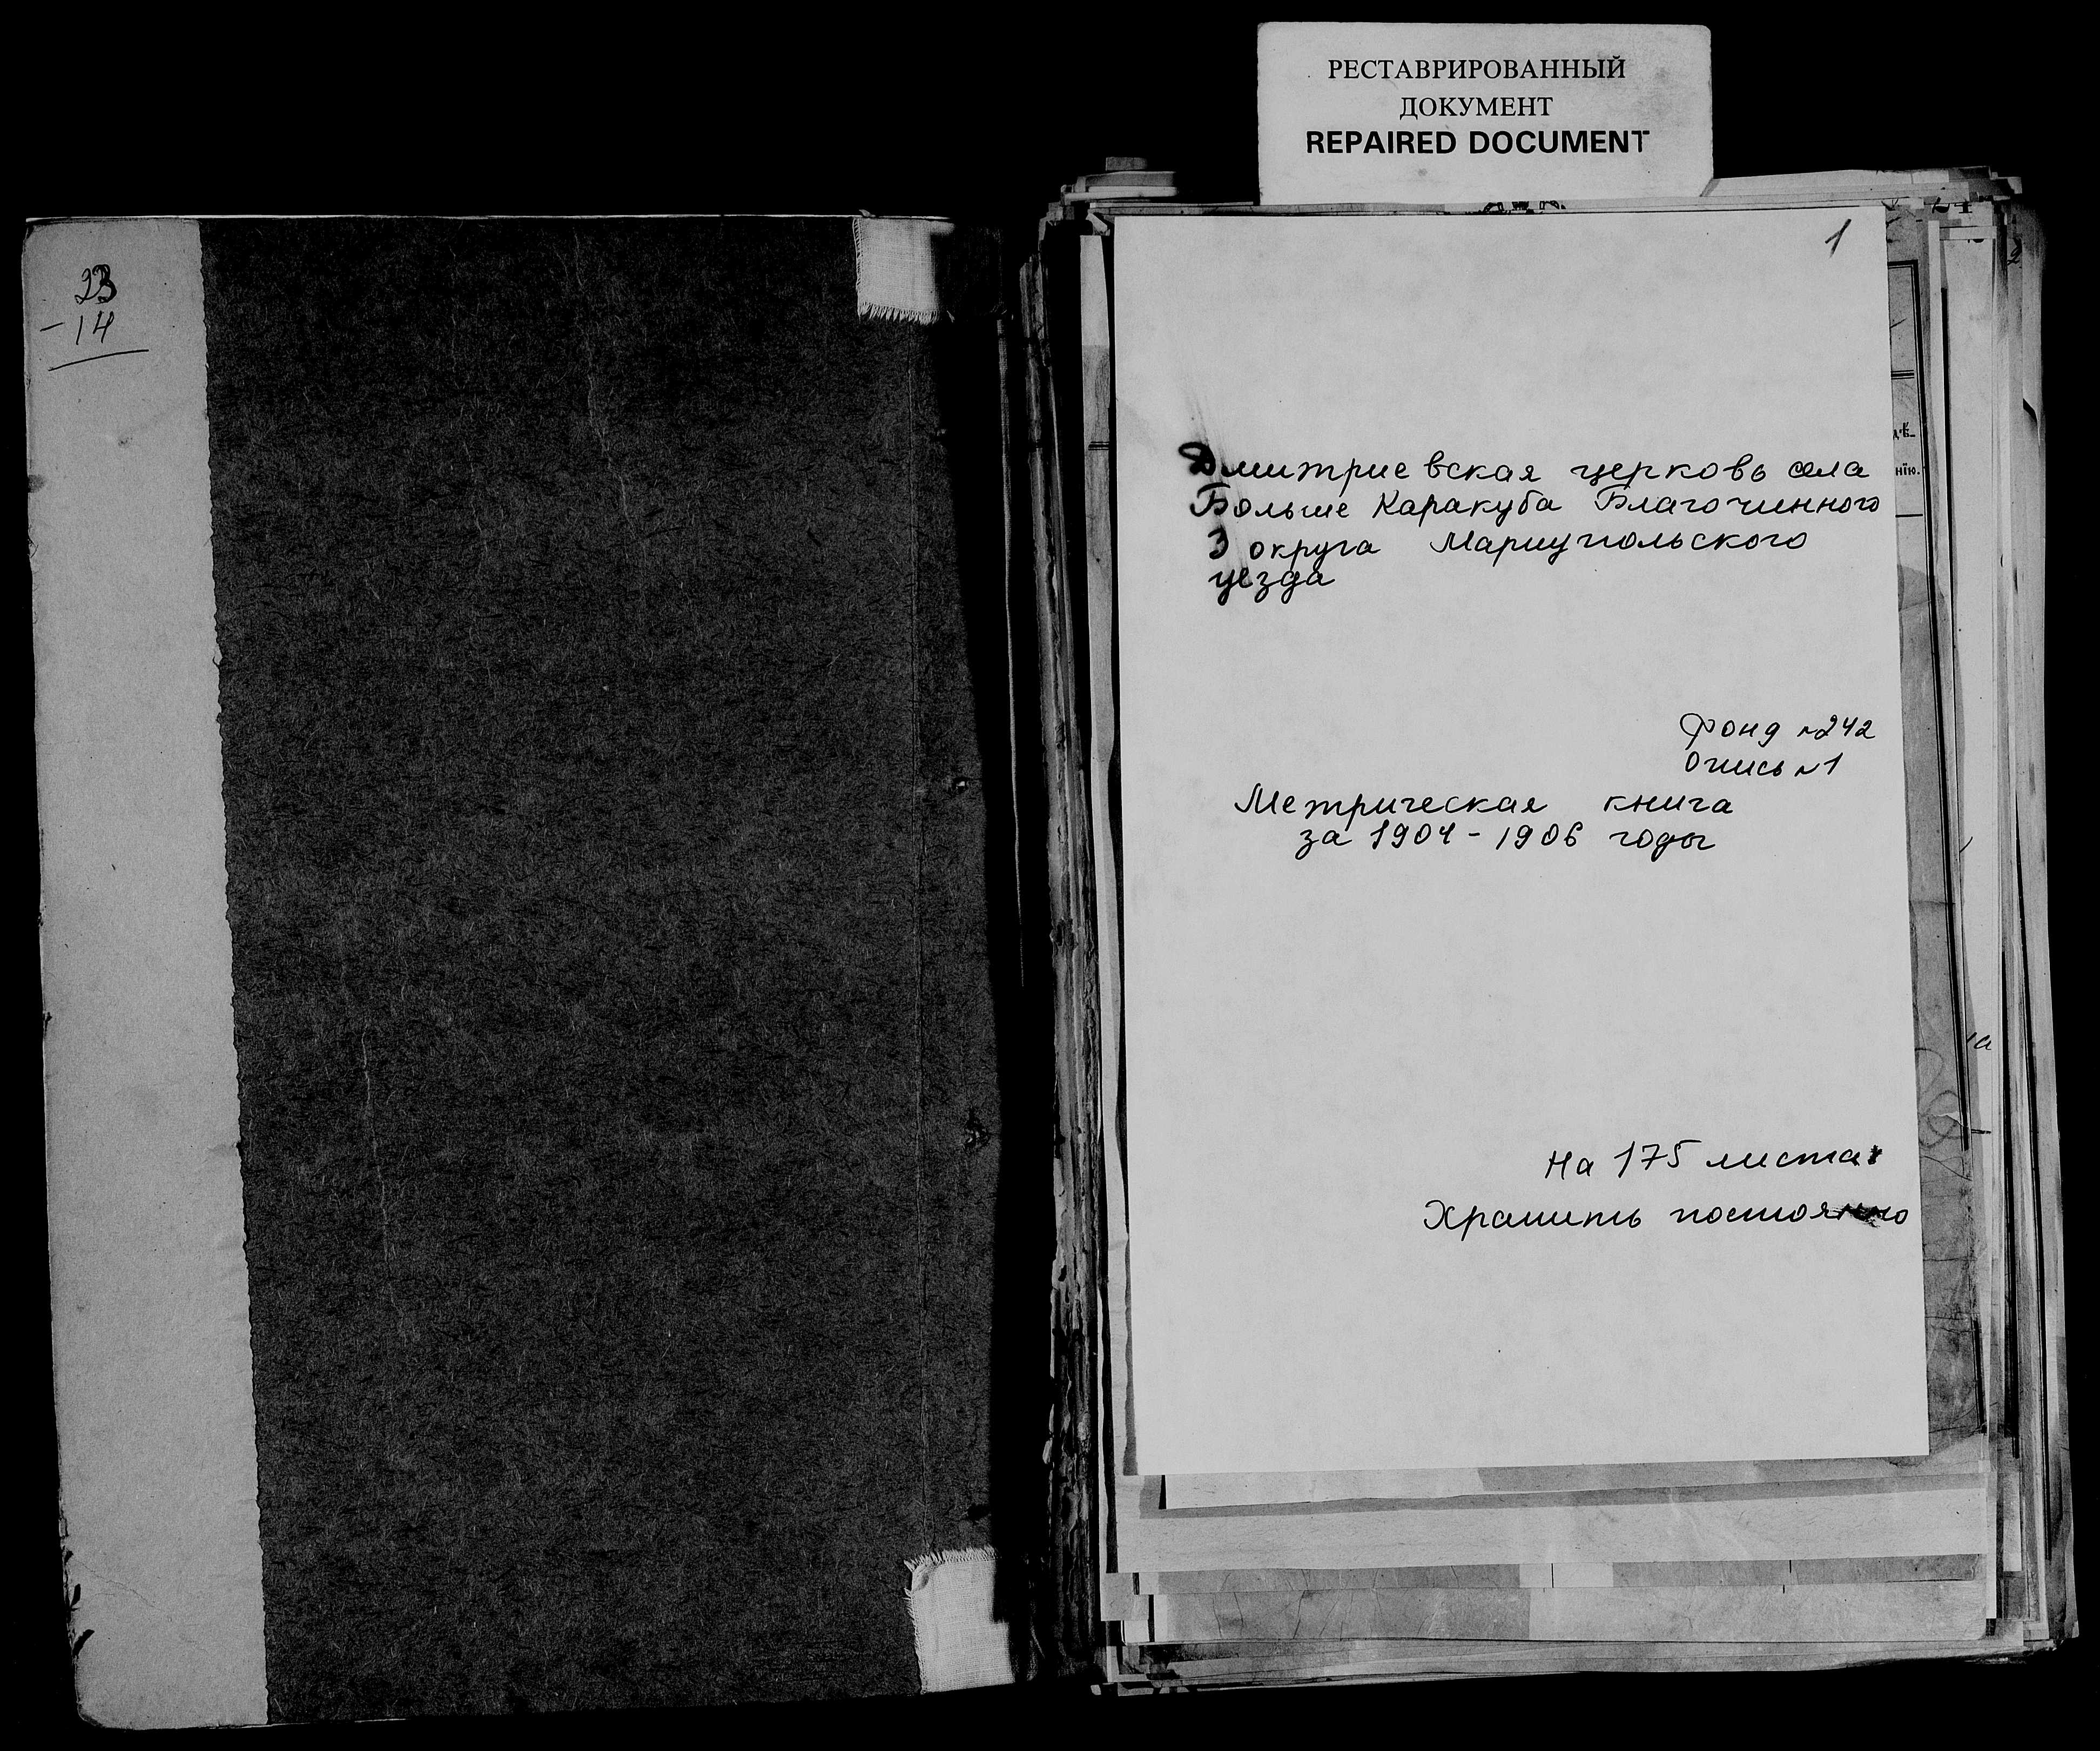 РЕСТАВРИРОВАННЫЙ
ДОКУМЕНТ
REPAIRED DOCUMENT
23
-14
1
Дмитриевская церковь села
Больше Каракуба Благочинного
3 округа Мариупольского
уезда
Фонд №242
Опись №1
Метрическая книга
за 1904-1906 годы
На 175 листах
Хранить постоянно